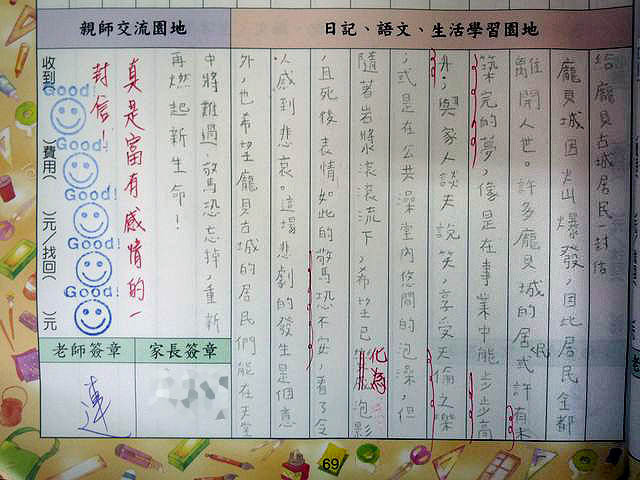 日記、語文、生活學習園地
給龐貝古城居民封信
龐貝城因火山爆發，因此居民全都
離開人世。許多龐貝城的居民或許有未
築完的夢，像是在事業中能步步高
升；與家人談天說笑，享受天倫之樂
，或是在公共澡堂內悠閒的泡澡，但
隨著岩漿滾滾流下，希望已化為泡影
，且死後表情如此的驚恐不安，看了令
人感到悲哀。這場悲劇的發生是個意
外，也希望龐貝古城的居民們能在天堂
中將難過、驚恐忘掉，重新
再燃起新生命！
親師交流園地
真是富有感情的一
封信！
Good!
Good!
Good!
Good!
Good!
收到（ ）費用（ ）元／找回（ ）元
家長簽章
老師簽章
蓮
69